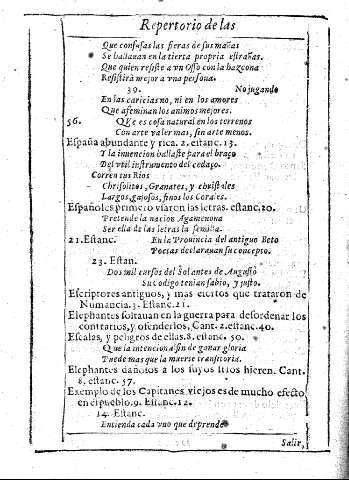 Repertorio de las
Que confusas las fieras de sus mañas
Se hallauan en la tierra propria estrañas.
Que quien resiste a vn Osso con la bazcona
Resistirà mejor a vna persona.
39. No jugando
En las caricias no, ni en los amores
Que afeminan los animos mejores.
56. Que es cosa natural en los terrenos
Con arte valer mas, sin arte menos.
España abundante y rica. 2. estanc. 13.
Y la inuencion hallaste para el braço
Del vtil instrumento del cedaço.
Corren tus Rios
Chrisolitos, Granates, y christales
Largos, gajosos, finos los Corales.
Españoles primero vsaren las letras. estanc. 20.
Pretende la nacion Agamenona
Ser ella de las letras la semilla.
21. Estanc. En la Prouincia del antiguo Beto
Poesas declarauan su concepto.
23. Estan.
Dos mil cursos del Sol antes de Augusto
Su codigo tenian sabio, y justo.
Escriptores antiguos, y mas ciertos que trataron de
Numancia. 3. Estanc. 21.
Elephantes soltauan en la guerra para desordenar los
contrarios, y ofenderlos, Cant. 2. estanc. 40.
Escalas, y peligros de ellas. 8. estanc. 50.
Que la intencion a fin de ganar gloria
Puede mas que la muerte transitoria.
Elephantes dañosos a los suyos si los hieren. Cant.
8. estanc. 57.
Exemplo de los Capitanes viejos es de mucho efecto
en el pueblo. 9. Estanc. 12.
14. Estanc.
Entienda cada vno que deprende
Salir,